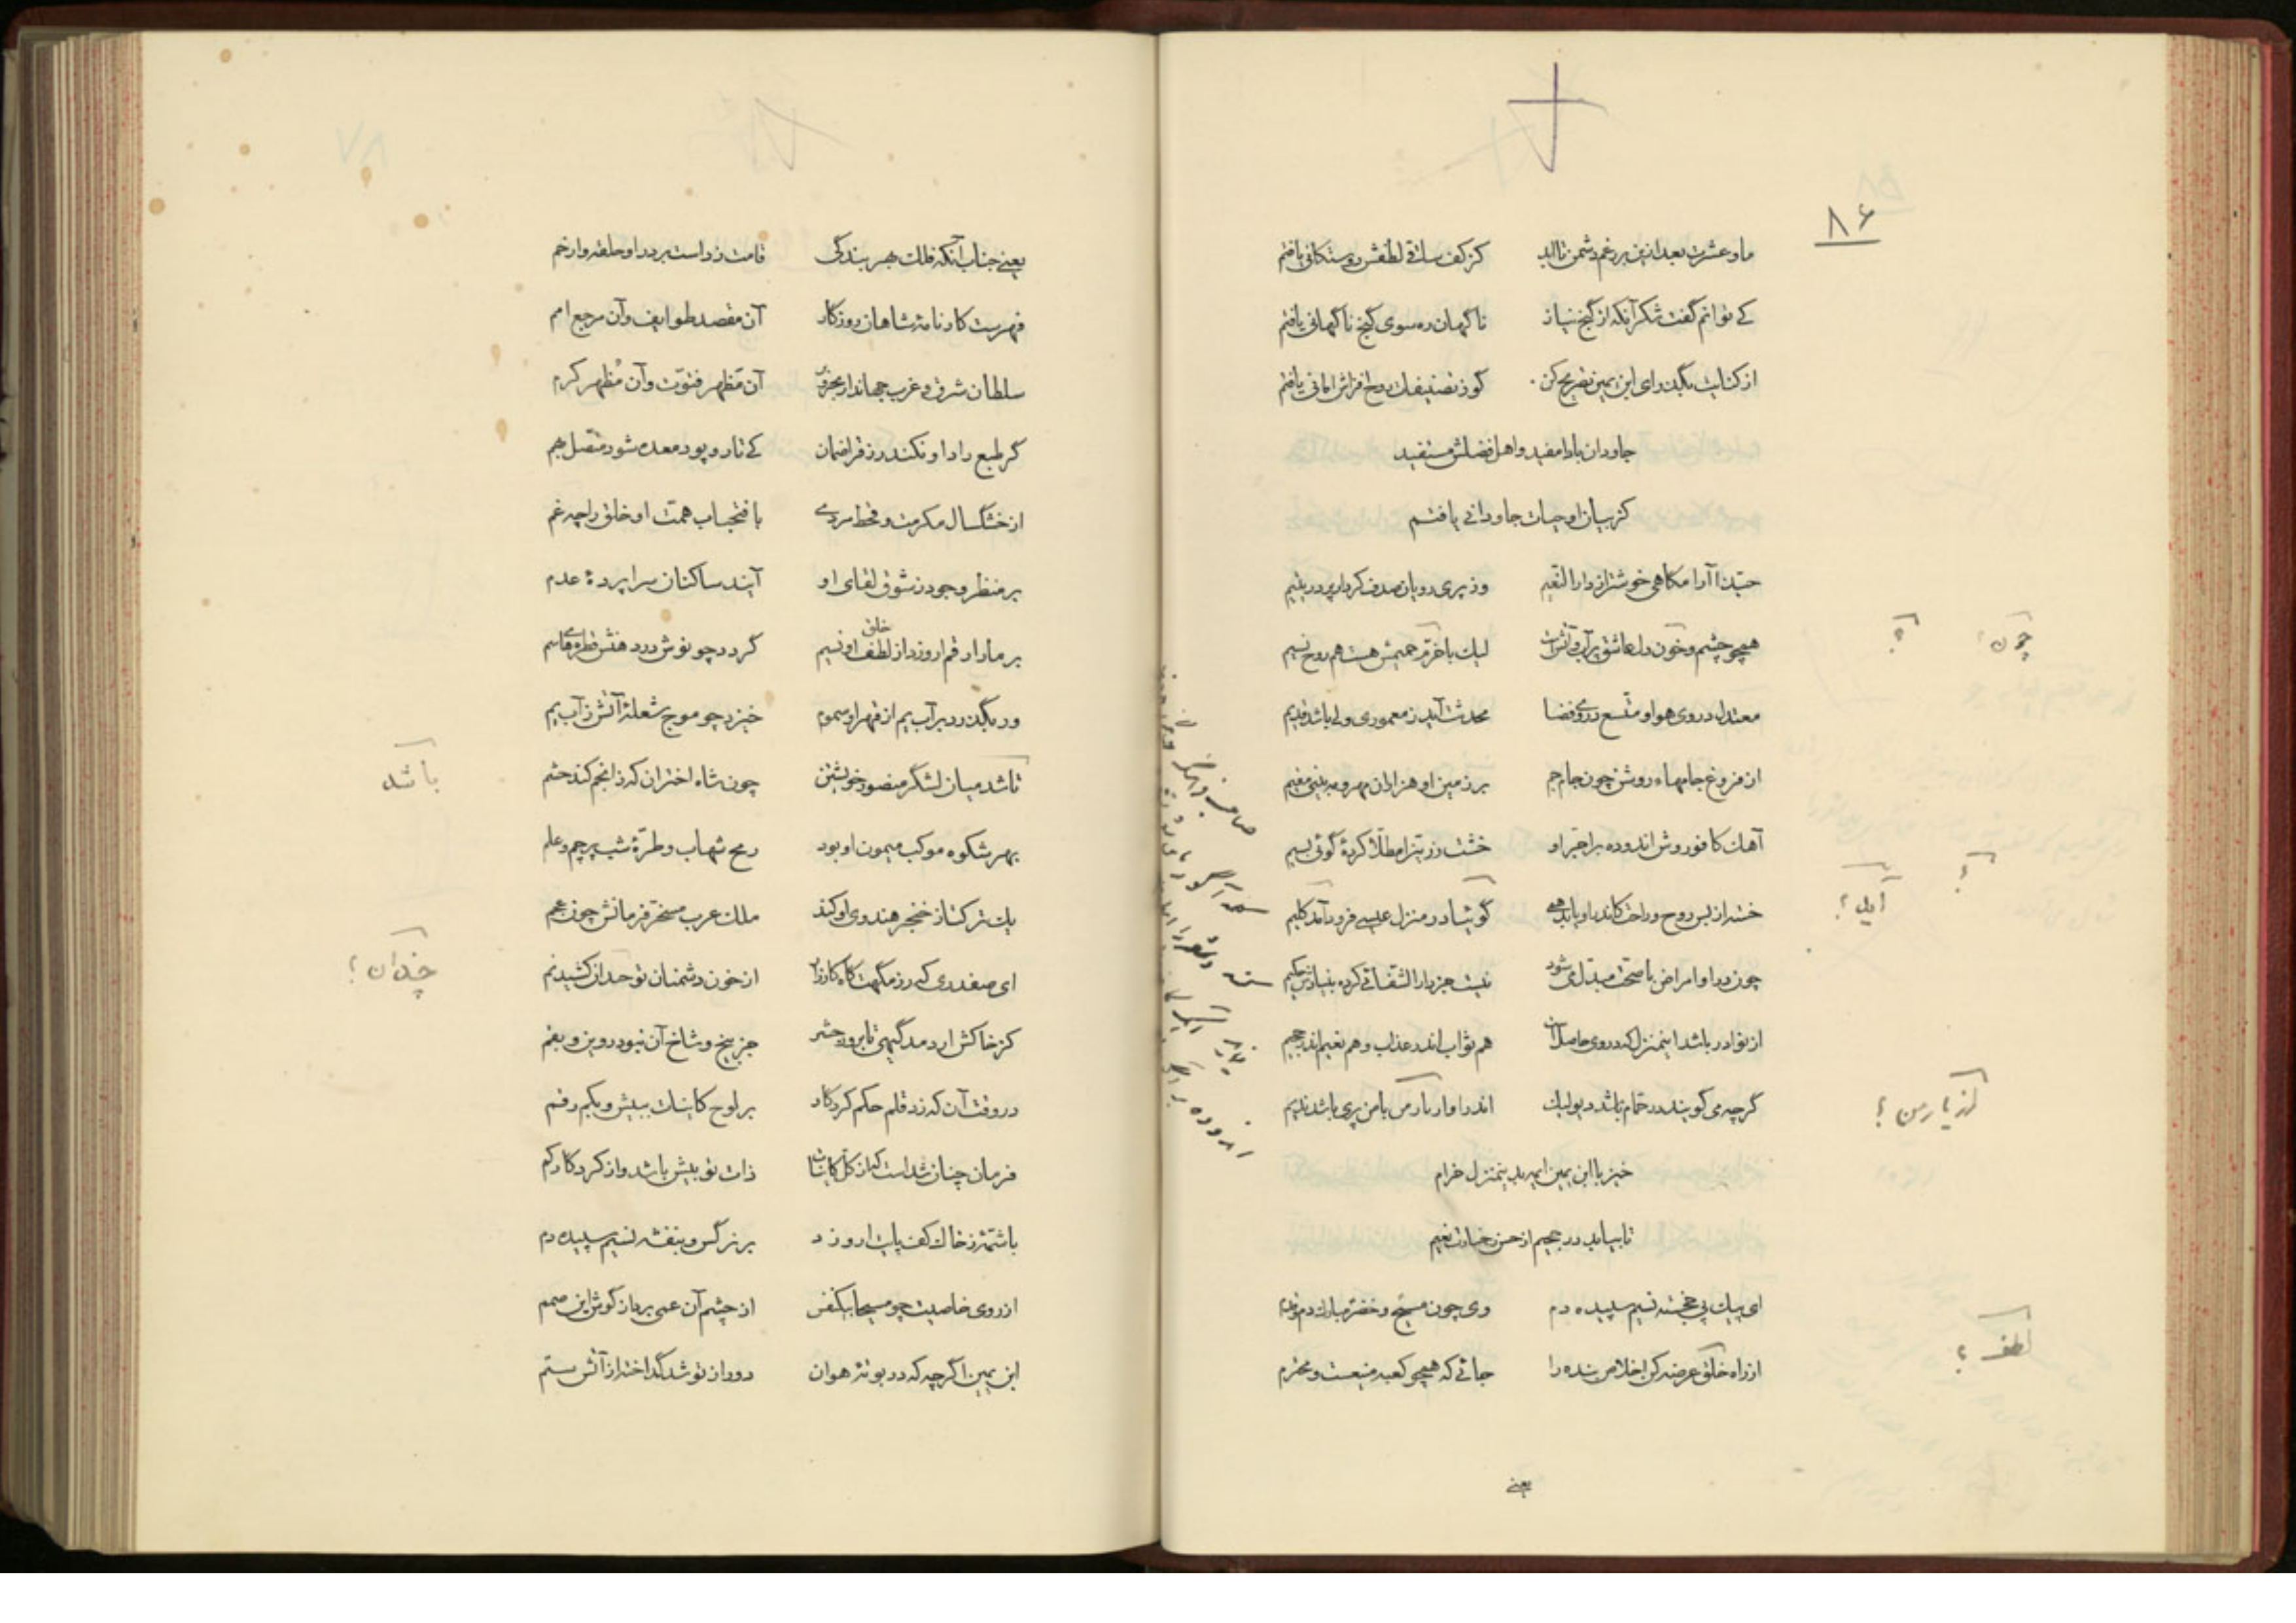 ۸۶
ما و عشرت بعد ازین بر رغم دشمن تا ابد کز کف ساقی لطفش دوستکانی یافتم
کی توانم گفت شکر آنکه از گنج نیاز ناگهان ره سوی گنج ناگهانی یافتم
از کنایت بگذر ای ابن یمین تصریح کن کو ز تصنیفات روح افزاش امانی یافتم
جاودان بادا مفید و اهل فضلش مستفید
کز بیان او حیات جاودانی یافتم
حبّذا آرامگاهی خوشتر از دار النعیم وز پری رویان صدف کردار پر درّ یتیم
همچو چشم و خون دل عاشق پر آب و آتش است لیک با خرّم همیش هست هم روح نسیم
معتدل در وی هوا و متّسع در وی فضا محدث آید ز معموری ولی باشد قدیم
از فروغ جامهاء روشن چون جام جم بر زمین او هزاران مهر و مه بینی مقیم
آهک کافوروش اندوده بر اجرّ او خشت زرّین را مطلّا کردهٔ گوئی بسیم
خسته از بس روح و راحت کاندر او یابد همی گوئیا در منزل عیسی فرود آمد کلیم
چون در او امراض با صحّت مبدّل میشود نیست جز دار الشّفائی کرده بنیادش حکیم
از نوادر باشد اینمنزل که در وی حاصل است هم ثواب اندر عذاب و هم نعیم اندر جحیم
گرچه می گویند در حمّام باشد دیو لیک اندر او از یار من با من پری باشد ندیم
خیز با ابن یمین ای بدینمنزل خرام
تا بیابد در جحیم از حسن جنّات نعیم
ای پیک پی خجسته نسیم سپیده دم وی چون مسیح و خضر مبارک دم و قدم
از راه خلق عرضه کن اخلاص بنده را جائی که همچو کعبه منیعست و محترم
یعنی
چون؟
؟
؟
آید؟
از یار من؟
لطف؟
یعنی جناب آنکه فلک بهر بندگی قامت ز راست بر در او حلقه وار خم
فهرست کارنامهٔ شاهان روزکار آن مقصد طوایف و آن مرجع امم
سلطان شرق و غرب جهاندار بحر و بر آن مَظهر فتوّت و آن مُظهر کرم
گر طبع را داد او نکند در زفر اضمان کی تار و پود معده شود متّصل بهم
از خشگسال مکرمت و قحط مردمی با فتحباب همّت او خلق را چه غم
بر منظر وجود ز شوق لقای او آیند ساکنان سراپردهٔ عدم
بر مار ارقم ار وزد از لطف او نسیم گردد چو نوش در دهنش قطره‌های سم
خلق
ور بگذرد بر آب یم از قهر او سموم خیزد چو موج شعلهٔ آتش ز آب یم
تا شد میان لشگر منصور خویشتن چون شاه اختران که ز انجم کند حشم
بهر شکوه موکب میمون او بود رمح شهاب و طرّهٔ شب پرچم و علم
یک ترکتاز خنجر هندوی او کند ملک عرب مسخّر فرمانش چون عجم
ای صفدری که رزمگهت گاه کارزار از خون دشمنان تو حدان کشید نم
کز خاکش ار دمد گیهی تا بروز حشر جز بیخ و شاخ آن نبود روین و بقم
در وقت آن که زد قلم حکم کردکار بر لوح کاینات ببیش و بکم رقم
فرمان چنان شد است که از کل کاینات ذات تو بیش باشد و از کردکار کم
با شمّهٔ ز خاک کف پایت ار وزد بر نرگس و بنفشه نسیم سپیده دم
از روی خاصیت چو مسیحا بیکنفس از چشم آن عمی برد از گوش این صمم
ابن یمین اگرچه که در بوتهٔ هوان دور از تو شد گداخته از آتش ستم
باشد
چندان؟